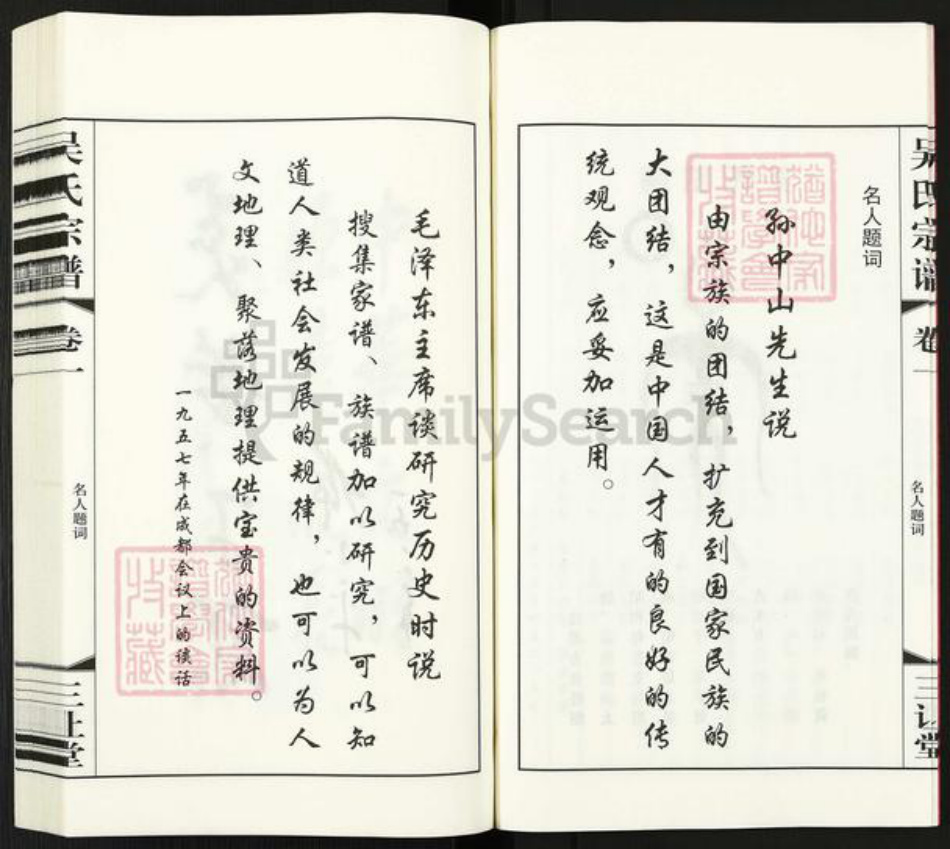 吴氏宗谱
卷一
名人题词
三让堂
名人题词
孙中山先生说
由宗族的团结，扩充到国家民族的
大团结，这是中国人才有的良好的传
统观念，应妥加运用。
毛泽东主席谈研究历史时说
搜集家谱、族谱加以研究，可以知
道人类社会发展的规律，也可以为人
文地理、聚落地理提供宝贵的资料。
一九五七年在成都会议上的谈话
吴氏宗谱
卷一
名人题词
三让堂
FamilySearch